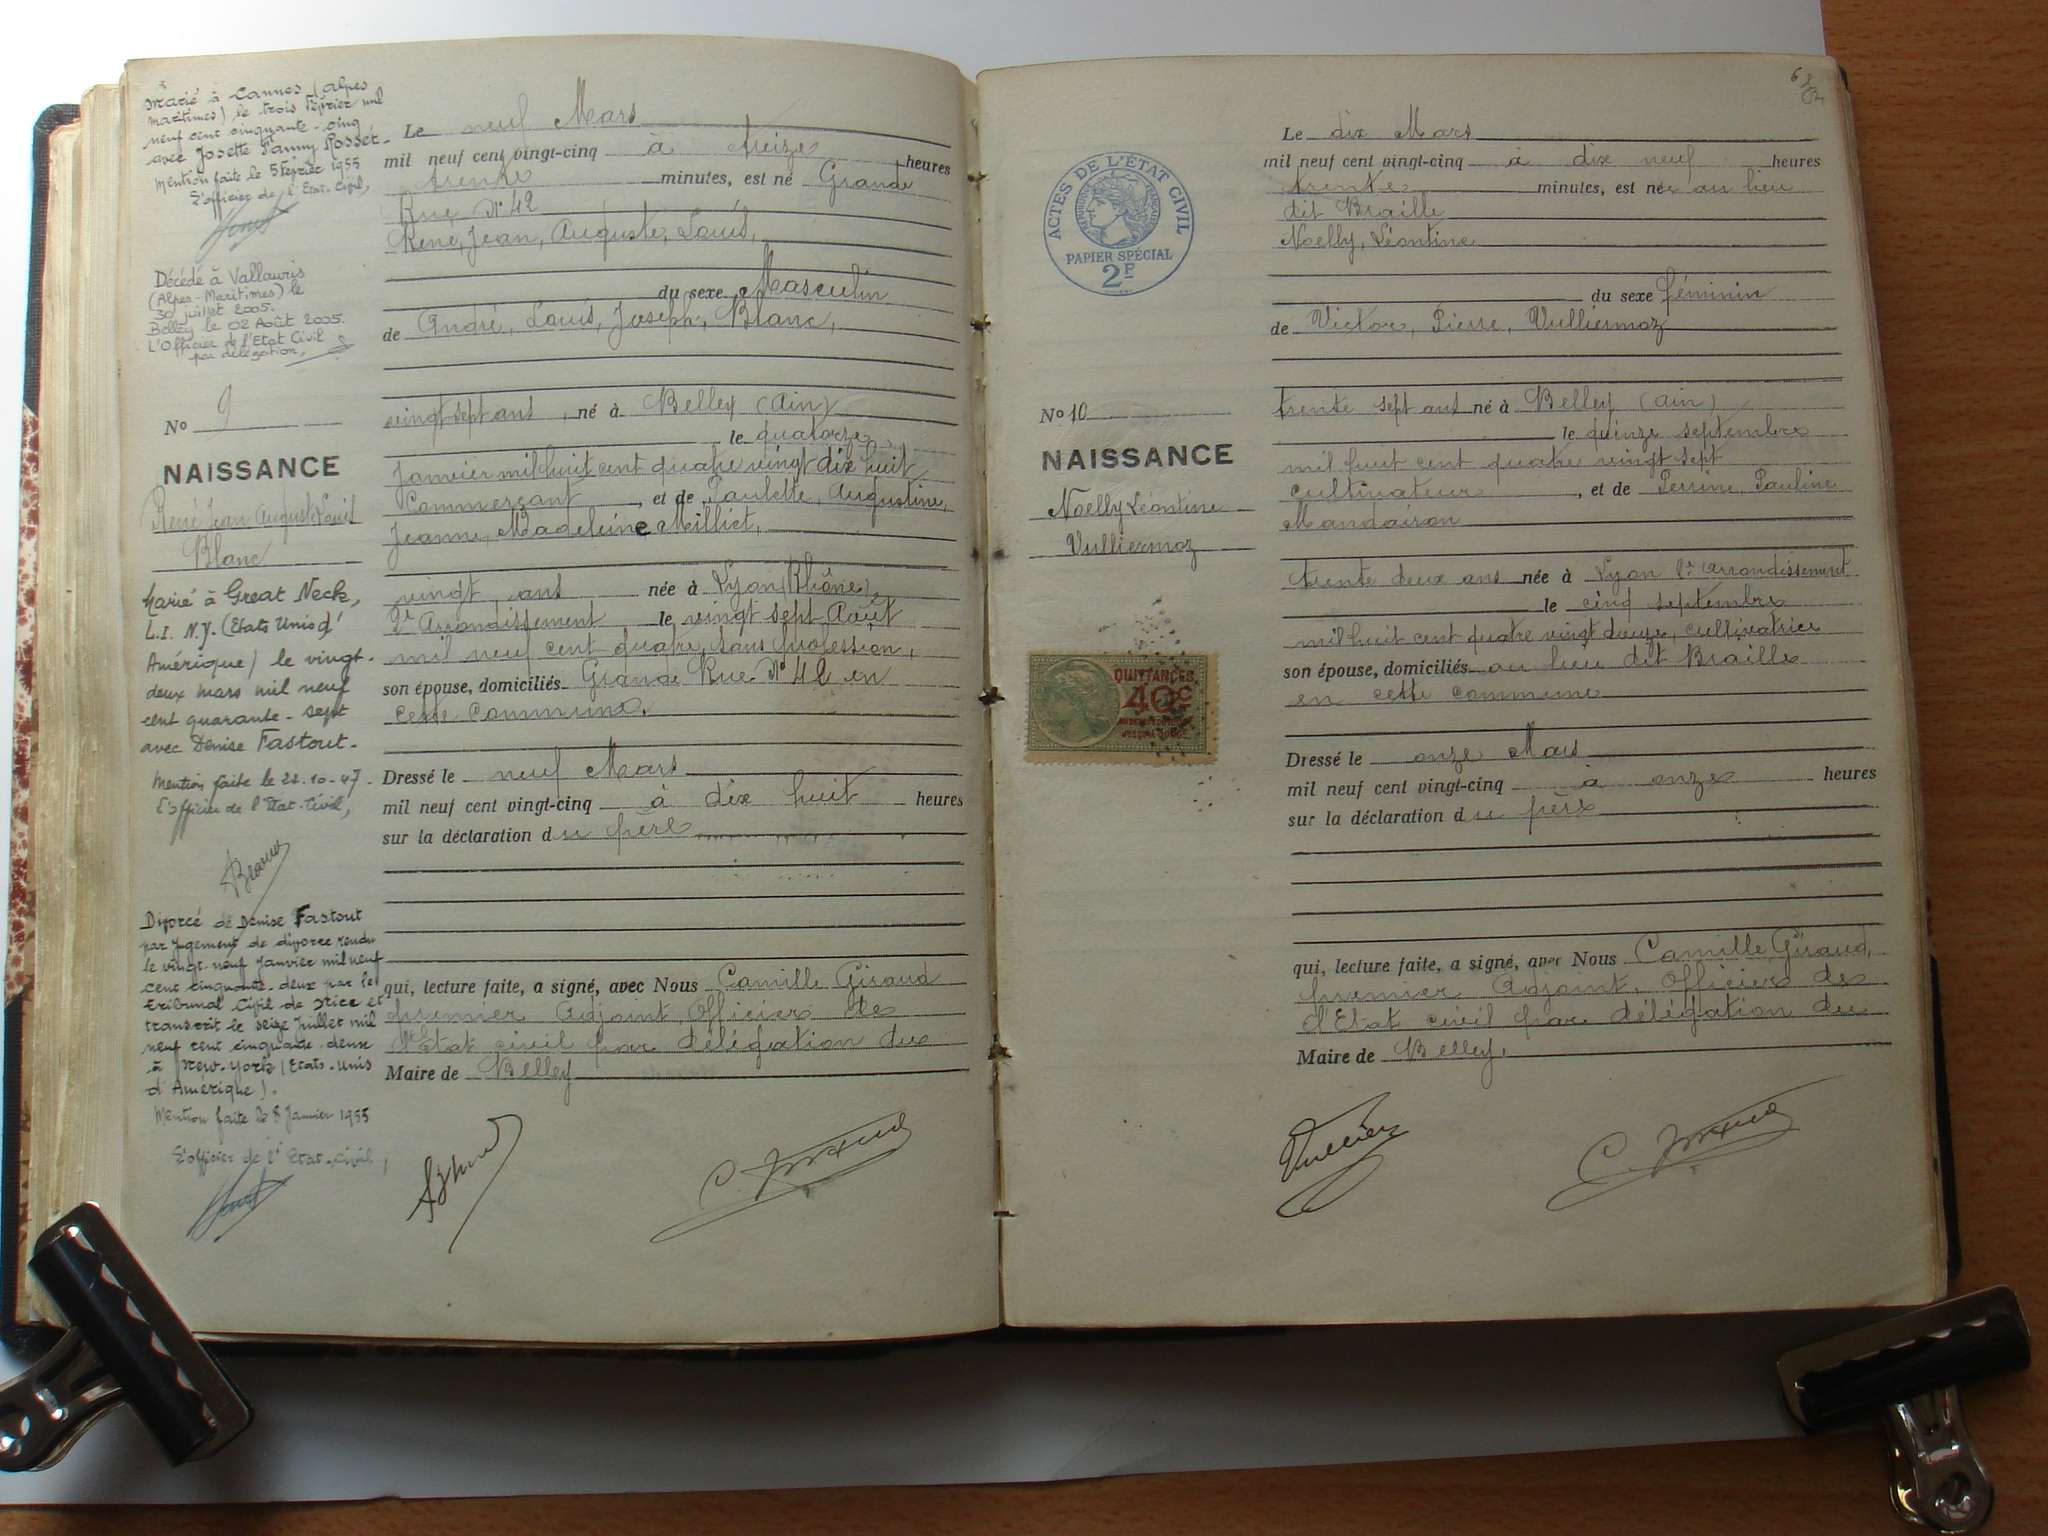 Marié à Cannes (Alpes
Maritimes) le trois Février mil
neuf cent cinquante-cinq
avec Josette Fanny Rosset-
Mention faite le 5 Février 1955
L'officier de l'Etat-Civil,
Décédé à Vallauris
(Alpes-Maritimes) le
30 juillet 2005.
Belley le 02 Août 2005.
L'Officier de l'Etat Civil
par délégation,
No 9
NAISSANCE
René Jean Auguste Louis
Blanc
Marié à Great Neck,
L.I. N.Y. (Etats Unis d'
Amérique) le vingt-
deux mars mil neuf
cent quarante-sept
avec Denise Fastout-
Mention faite le 22-10-47-
L'officier de l'Etat-Civil,
Divorcé de Denise Fastout
par jugement de divorce rendu
le vingt-neuf Janvier mil neuf
cent cinquante-deux par le
tribunal Civil de Nice et
transcrit le seize Juillet mil
neuf cent cinquante-deux
à New-York (Etats-Unis
d'Amérique).
Mention faite le 8 Janvier 1955
L'officier de l'Etat-Civil,
Le neuf Mars
mil neuf cent vingt-cinq à treize heures
trente minutes, est né Grande
Rue N° 42
René, Jean, Auguste, Louis,
du sexe Masculin
de André, Louis, Joseph, Blanc,
vingt sept ans, né à Belley (Ain)
le quatorze
Janvier mil huit cent quatre vingt dix huit
Commerçant, et de Paulette, Augustine,
Jeanne, Madeleine Milliet,
vingt ans née à Lyon (Rhône)
2e Arrondissement le vingt sept Août
mil neuf cent quatre, sans profession,
son épouse, domiciliés Grande Rue N° 42 en
cette commune.
Dressé le neuf Mars
mil neuf cent vingt-cinq à dix huit heures
sur la déclaration du père
qui, lecture faite, a signé, avec Nous Camille Giraud
premier Adjoint, Officier de
l'Etat civil par délégation du
Maire de Belley
ACTES DE L'ÉTAT CIVIL
RÉPUBLIQUE FRANÇAISE
PAPIER SPÉCIAL
2F
No 10
NAISSANCE
Noelly Léontine
Vulliermoz
QUITTANCES
40c
Le dix Mars
mil neuf cent vingt-cinq à dix neuf heures
trente minutes, est née au lieu
dit Braille
Noelly, Léontine
du sexe féminin
de Victor, Pierre, Vulliermoz
trente sept ans né à Belley (Ain)
le quinze septembre
mil huit cent quatre vingt sept
cultivateur, et de Perrine, Pauline
Mandairon
trente deux ans née à Lyon 2e arrondissement
le cinq septembre
mil huit cent quatre vingt douze, cultivatrice
son épouse, domiciliés au lieu dit Braille
en cette commune
Dressé le onze Mars
mil neuf cent vingt-cinq à onze heures
sur la déclaration du père
qui, lecture faite, a signé, avec Nous Camille Giraud,
premier Adjoint, Officier de
l'Etat civil par délégation du
Maire de Belley.